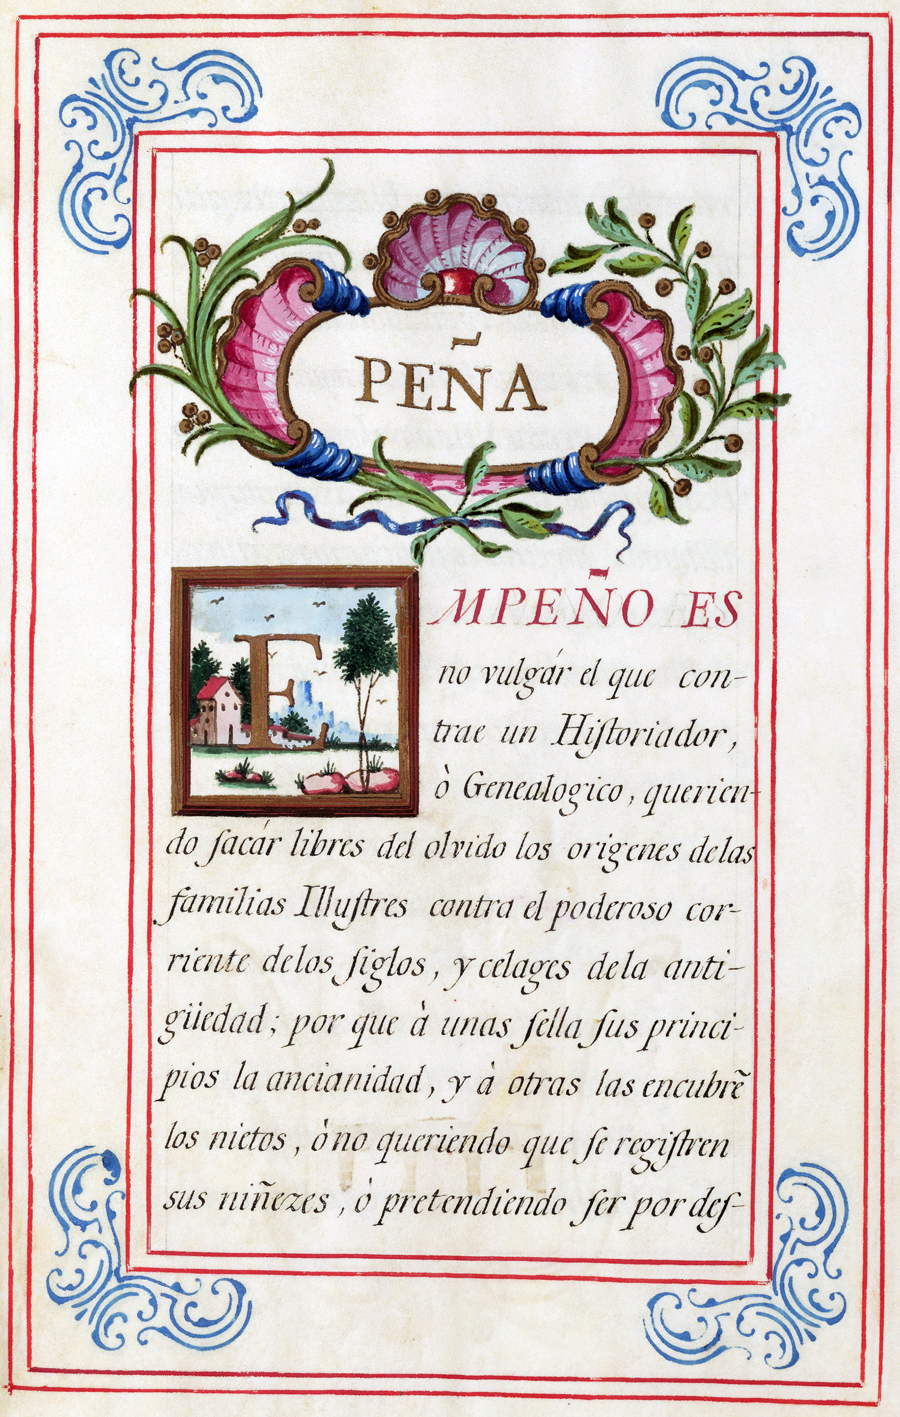 PEÑA
EMPEÑO ES
no vulgár el que con-
trae un Hiſtoriador,
ò Genealogico, querien-
do ſacár libres del olvido los origenes delas
familias Illuſtres contra el poderoso cor-
riente delos ſiglos, y celages dela anti-
güedad; por que à unas ſella ſus princi-
pios la ancianidad, y à otras las encubrẽ
los nietos, ò no queriendo que ſe regiſtren
sus niñezes, ò pretendiendo ſer por deſ-